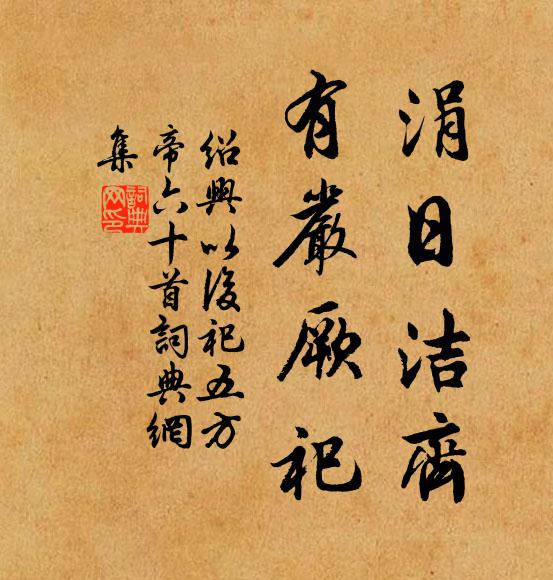 涓日洁齊
有嚴厥祀
紹興以後祀五方
帝六十首詞典網
集
詞典
网印